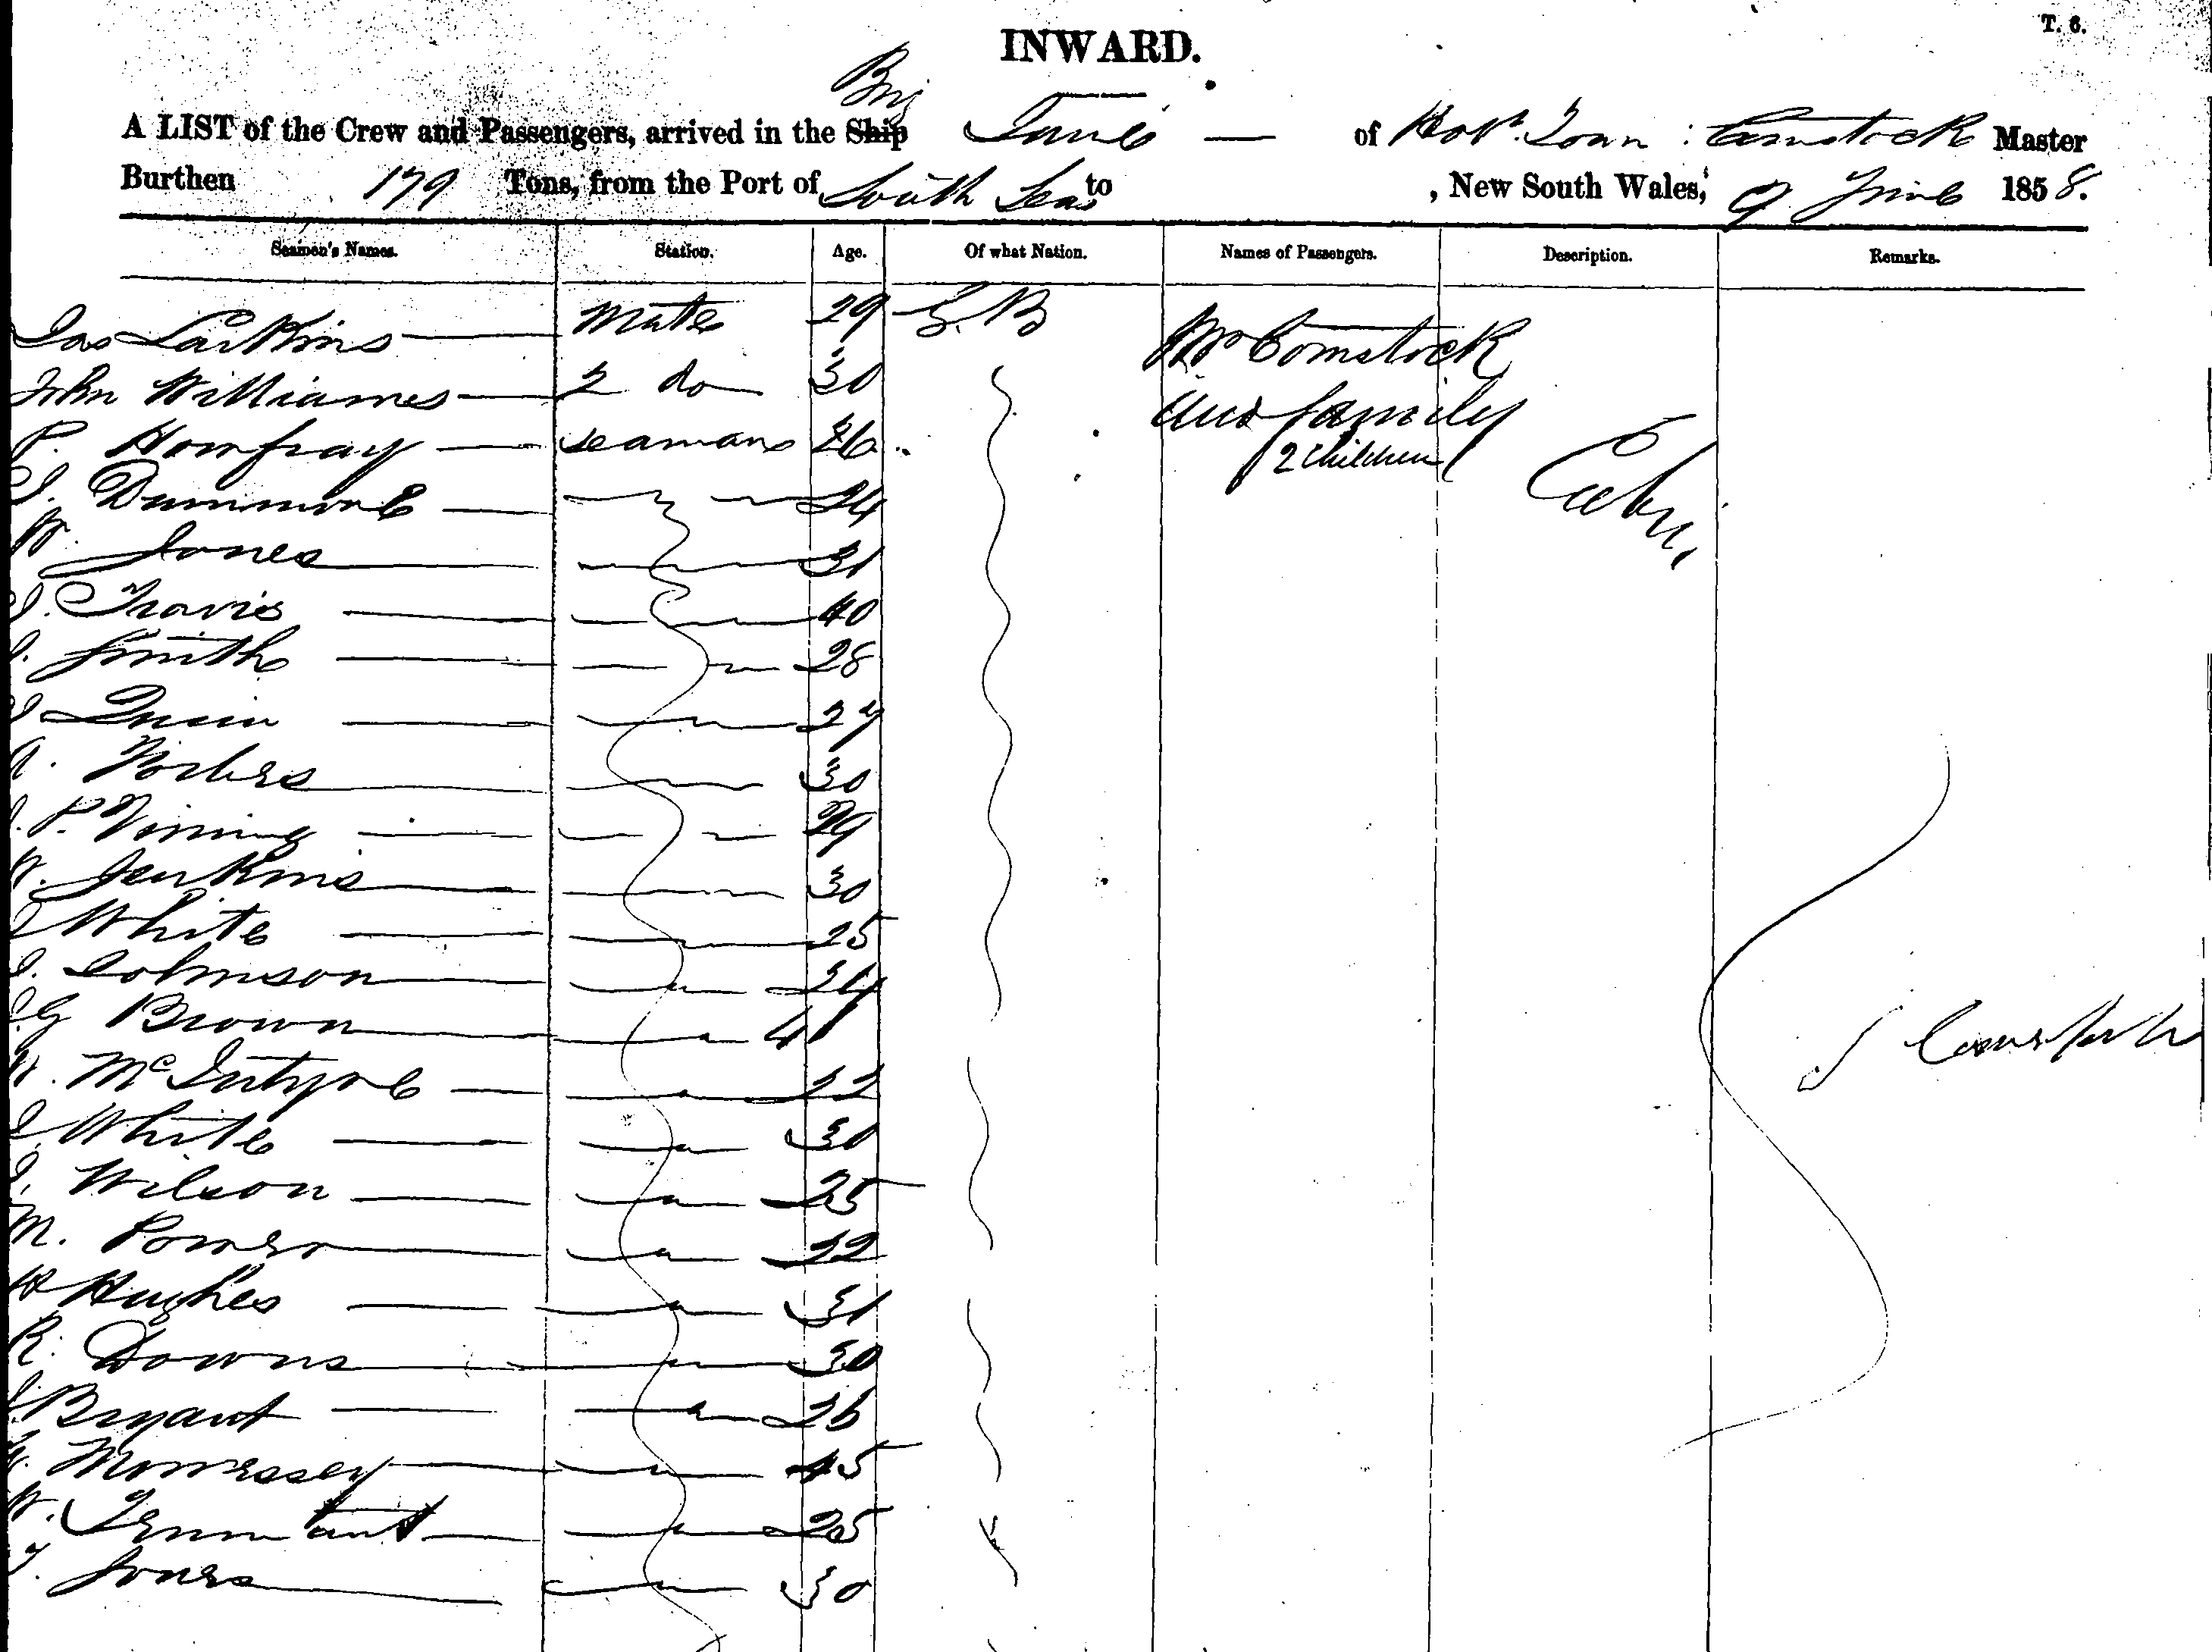 T. 6.
INWARD.
Brig
A LIST of the Crew and Passengers, arrived in the Ship of Hob. Town : Comstock Master
Burthen 179 Tons, from the Port of South Seas to , New South Wales, 9 June 1858.
Seamen's Names. Station. Age. Of what Nation. Names of Passengers. Description. Remarks.
Jas Larkins Mate 29 G. B Comstock
John Williames 2 do 30
and family
P. Homfray Seamans 26
2 Children
J. 24
W. Jones 31
J. Travis 40
J. Smith 28
J Quin 27
A. 30
J. P. Vining 29
W. Jenkins 30
J White 25
J. Johnson
J. G Brown 41
McIntyre 22
J. White 30
J. Wilson 25
M. Power 22
H Hughes 31
R. Downs 30
J. Bryant 26
Morressey 45
W. Tennant 25
T. Jones 30
J Comstock